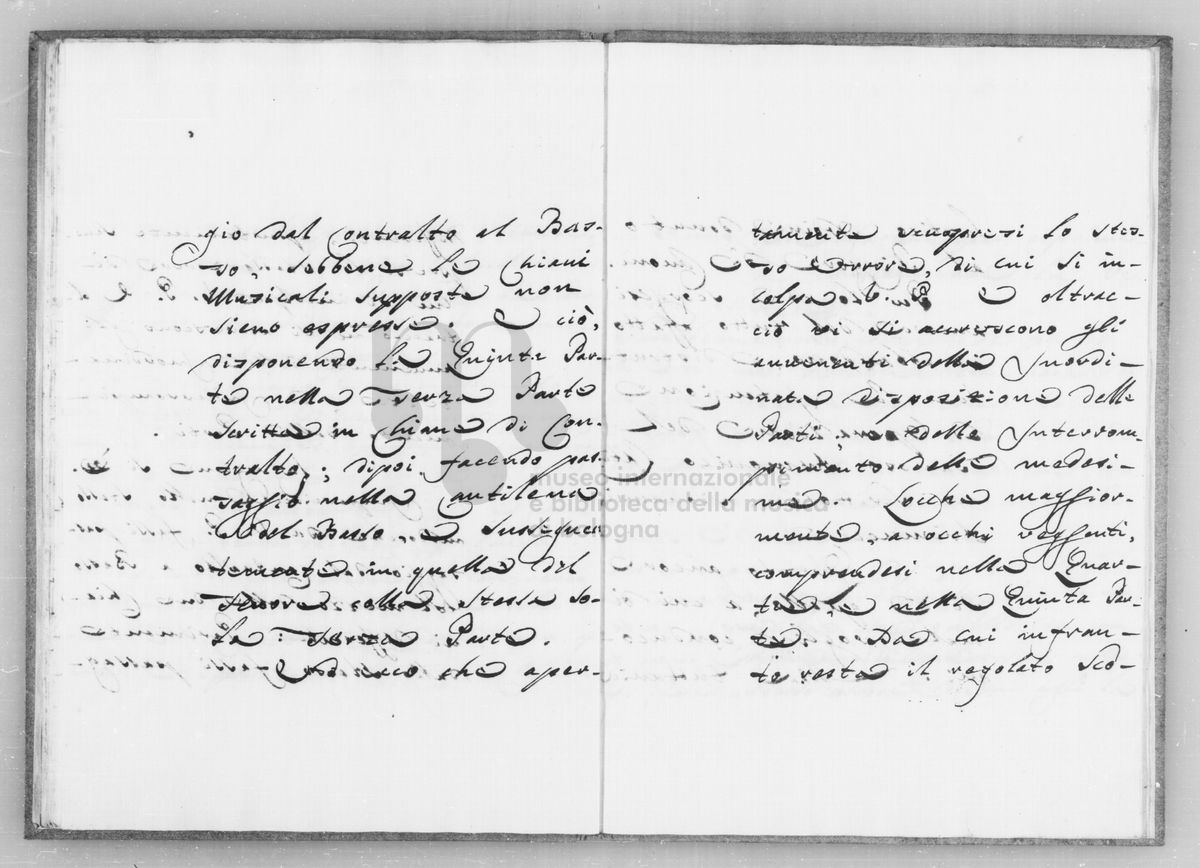 gio dal Contralto al Bas-
so, sebbene le Chiavi
Musicali supposte non
sieno espresse. E ciò,
disponendo la Quinta Par-
te nella Terza Parte
scritta in Chiave di Con-
tralto; dipoi facendo pas-
saggio nella Cantilena
del Basso e susseguen
temente in quella del
Tenore colla stessa so-
la Terza Parte.
che aper-
tamente vi si lo stes-
so Errore, di cui si in-
colpa E oltrac-
ciò vi si accrescono gli
della Inordi-
nata Disposizione delle
Parti, e delle Interrom-
pimento delle medesi-
me. Locche maggior-
mente, a occhi veggenti,
comprendesi nella Quar-
ta, e nella Quinta Par-
te. Da cui infran-
to resta il regolato Sco-
museo internazionale
e biblioteca della musica
di bologna